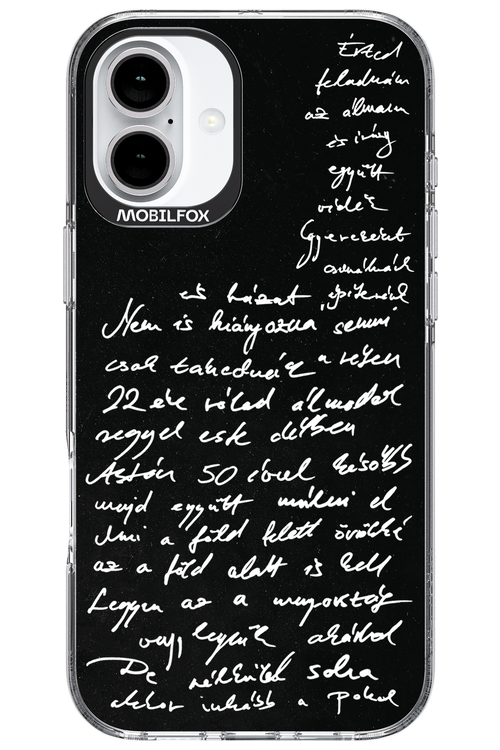 MOBILFOX
Érted
feladnám
az álmaim
és így
együtt
Gyereket
csinálnánk
és házat építenék
Nem is hiányozna semmi
csak
22 éve rólad álmodok
reggel este délben
Aztán 50 évvel később
majd együtt múlni el
Ami a föld felett örökké
az a föld alatt is kell
Legyen az a mennyország
vagy legyünk akárhol
De nélküled soha
akkor inkább a Pokol